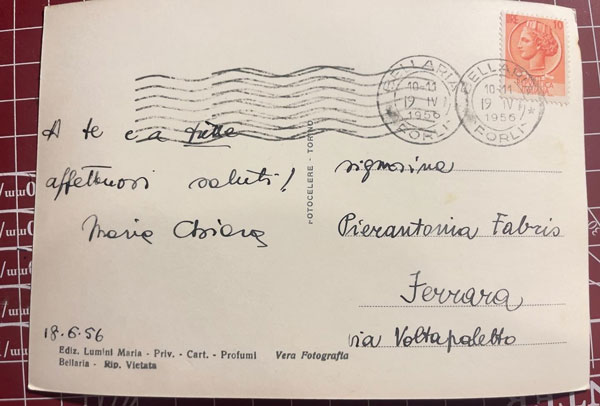 BELLARIA
10-11
19 IV
1956
FORLI
BELLARIA
10-11
19 IV
1956
FORLI
A te e a tutte
affettuosi saluti!
Maria Chiara
18.6.56
Ediz. Lumini Maria - Priv. - Cart. - Profumi Vera Fotografia
Bellaria - Rip. Vietata
FOTOCELERE - TORINO
signorina
Pierantonia Fabris
Ferrara
via Voltapaletto